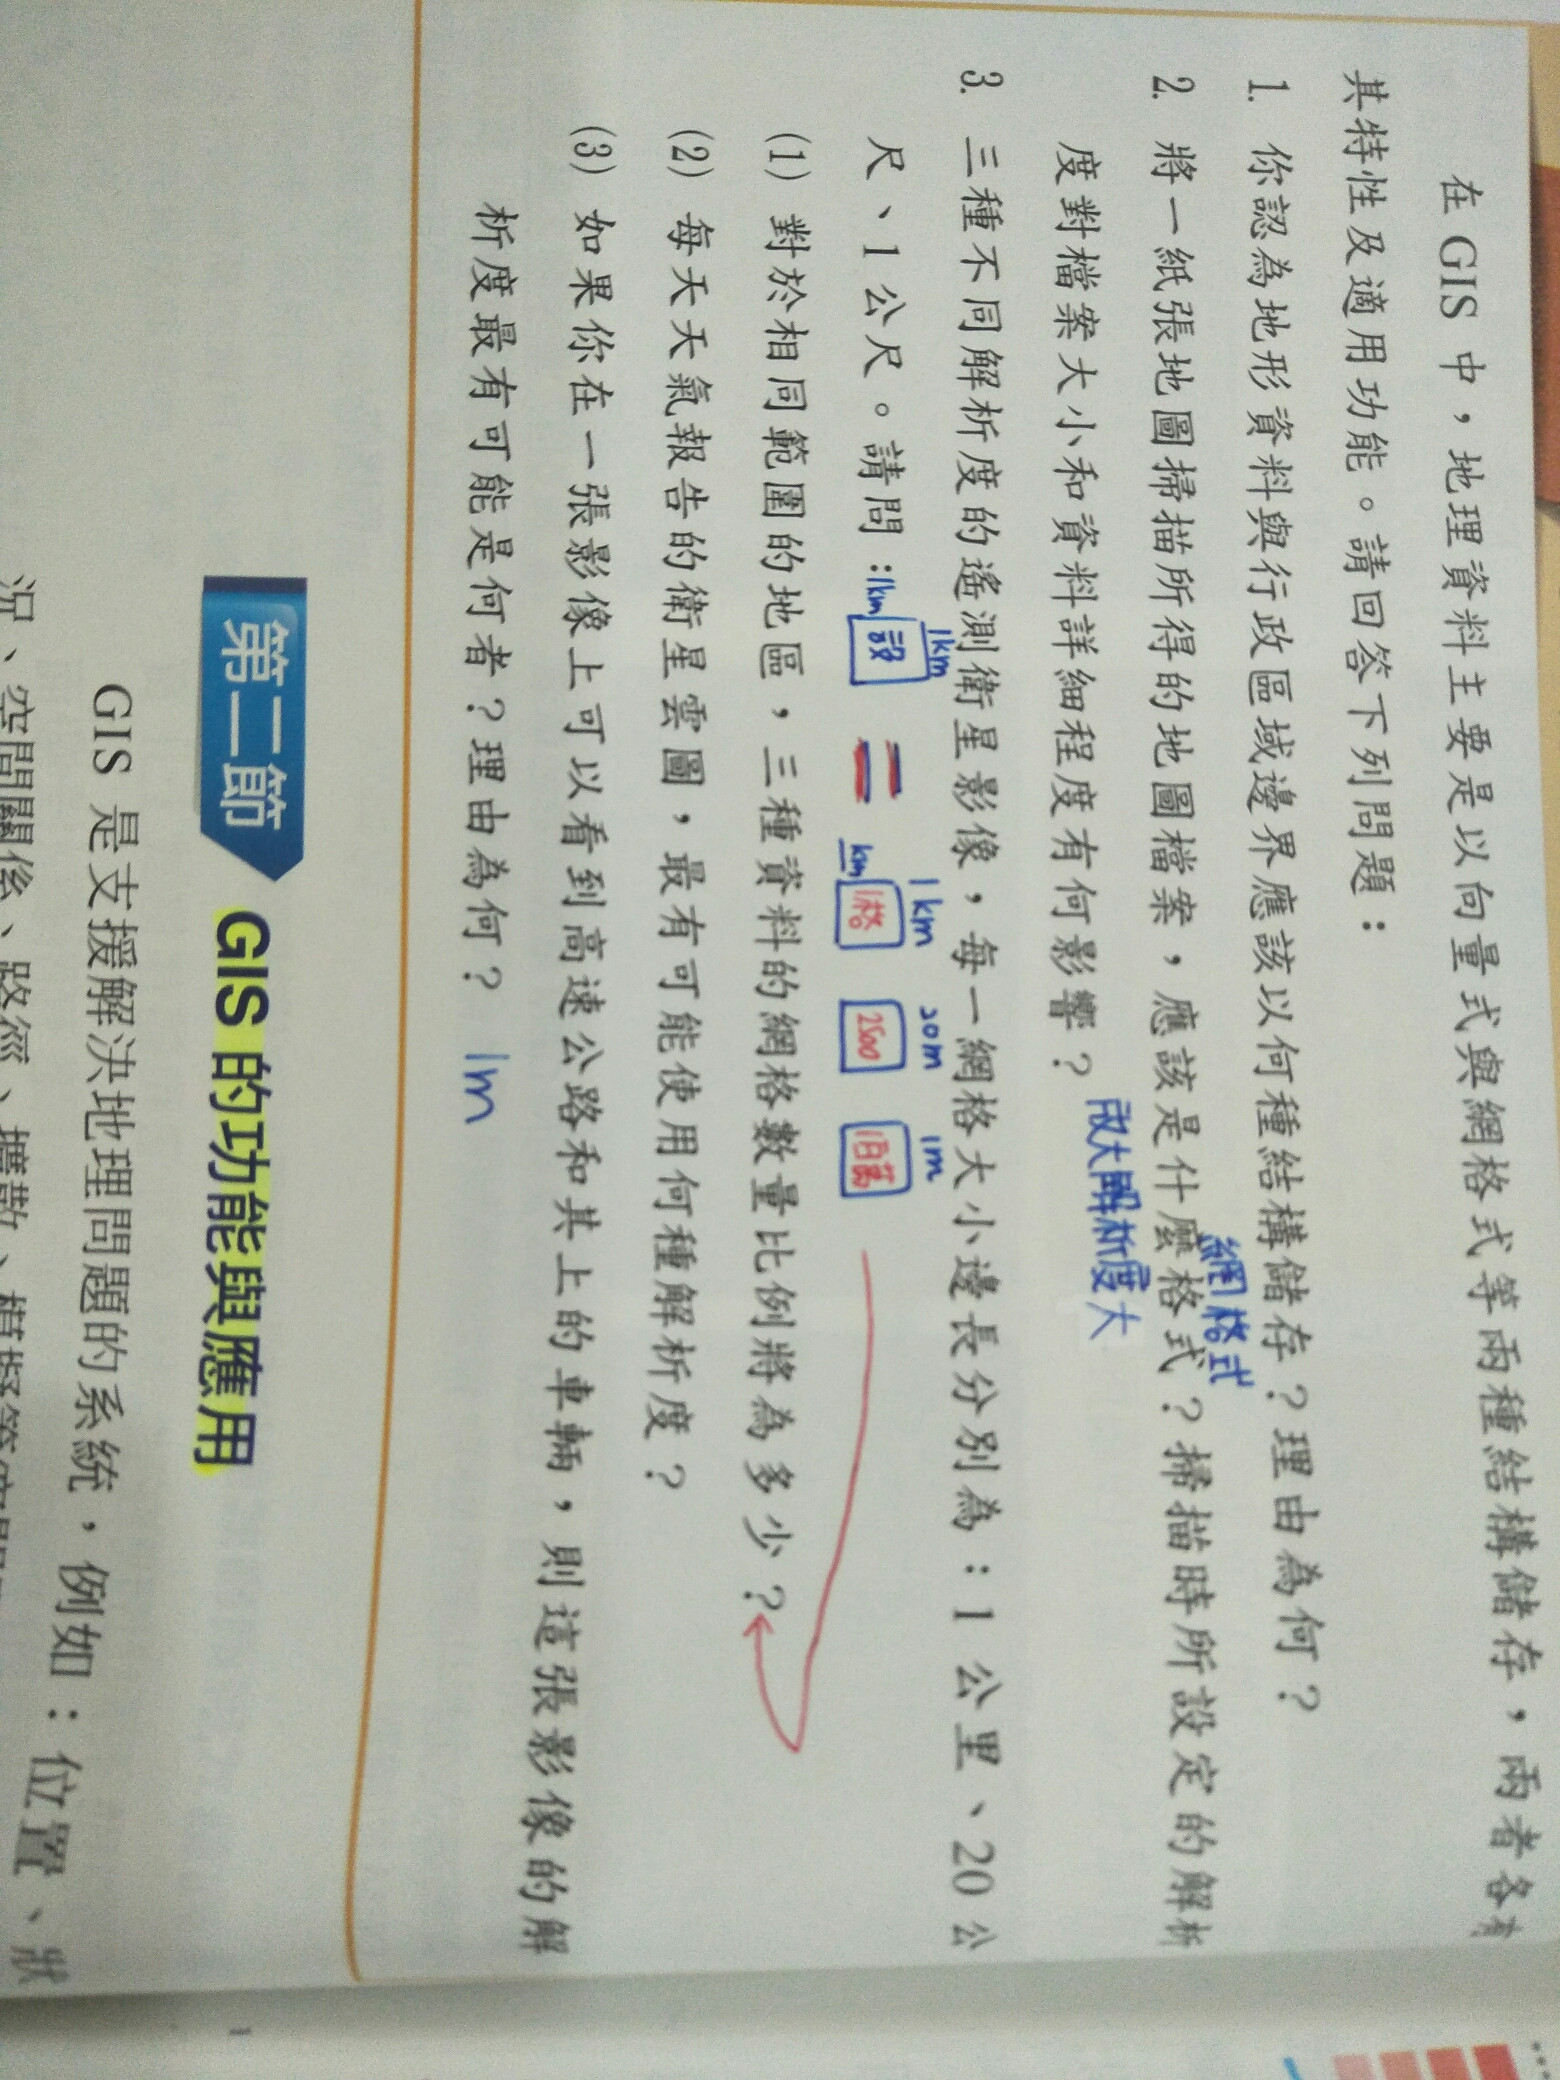 在 GIS 中，地理資料主要是以向量式與網格式等兩種結構儲存，兩者各有
其特性及適用功能。請回答下列問題：
1. 你認為地形資料與行政區域邊界應該以何種結構儲存？理由為何？
網格式
2. 將一紙張地圖掃描所得的地圖檔案，應該是什麼格式？掃描時所設定的解析
度對檔案大小和資料詳細程度有何影響？ 放大解析度大
3. 三種不同解析度的遙測衛星影像，每一網格大小邊長分別為：1 公里、20 公
尺、1 公尺。請問：
1km 1km 20m 1m
1km 設 = km 1格 2500 1百萬
(1) 對於相同範圍的地區，三種資料的網格數量比例將為多少？
(2) 每天天氣報告的衛星雲圖，最有可能使用何種解析度？
(3) 如果你在一張影像上可以看到高速公路和其上的車輛，則這張影像的解
析度最有可能是何者？理由為何？ 1m
第二節 GIS 的功能與應用
GIS 是支援解決地理問題的系統，例如：位置、狀
況、空間關係、路徑、擴散、模擬等